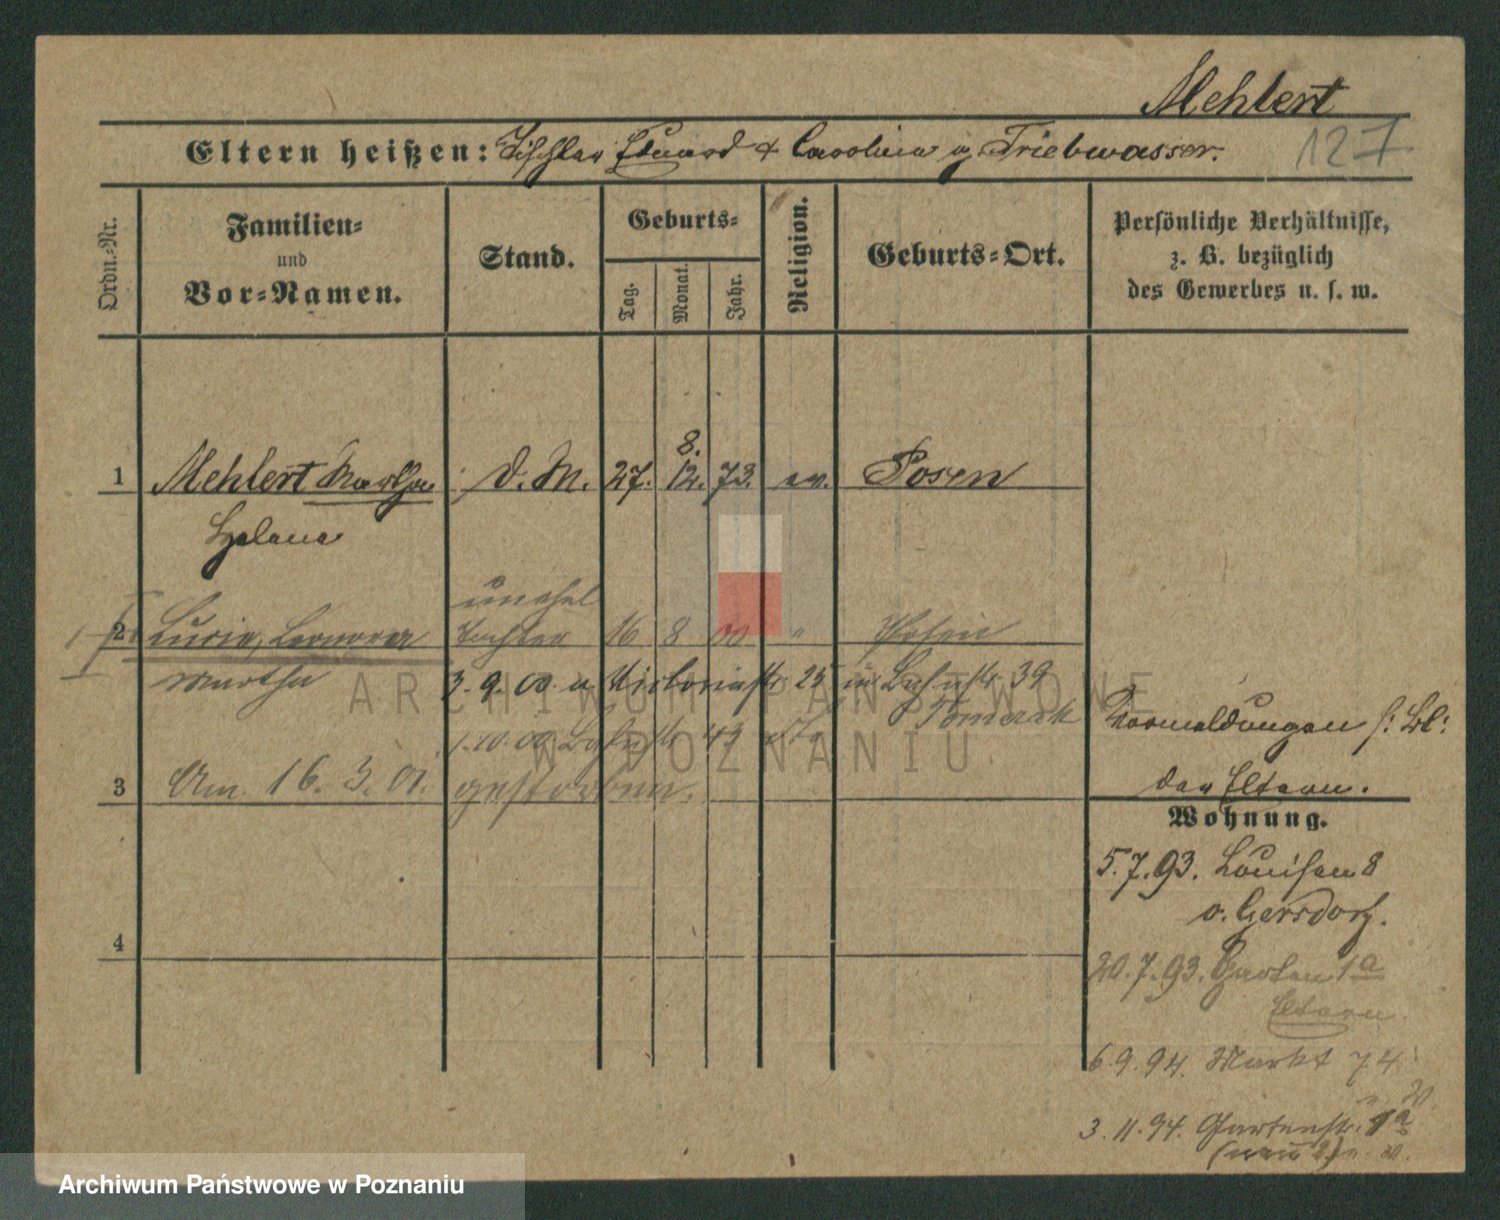 Mehlert
127
Eltern heißen: Tischler Eduard & Carolina g. Triebwasser.
Ordn.-Nr.
Familien-
und
Vor-Namen.
Stand.
Geburts-
Tag.
Monat.
Jahr.
Religion.
Geburts-Ort.
Persönliche Verhältnisse,
z. B. bezüglich
des Gewerbes u. s. w.
8.
1 Mehlert Martha d. M. 27. 12. 73. ev. Posen
Helene
unehel
2 Lucie, Leonore Tochter 16 8 00 " Posen
Martha 3. 9. 00. a Victoriastr 25 in 39
1. 10. 00 43
Vormeldungen s: Bl:
der Eltern.
3 Am 16. 3. 01. gestorben.
Wohnung.
5. 7. 93. Louisen 8
v. Gersdorf.
4
20. 7. 93. Garten 1a
Eltern
6. 9. 94. Markt 74
3. 11. 94. Gartenstr. 1a
ARCHIWUM PAŃSTWOWE
W POZNANIU
Archiwum Państwowe w Poznaniu